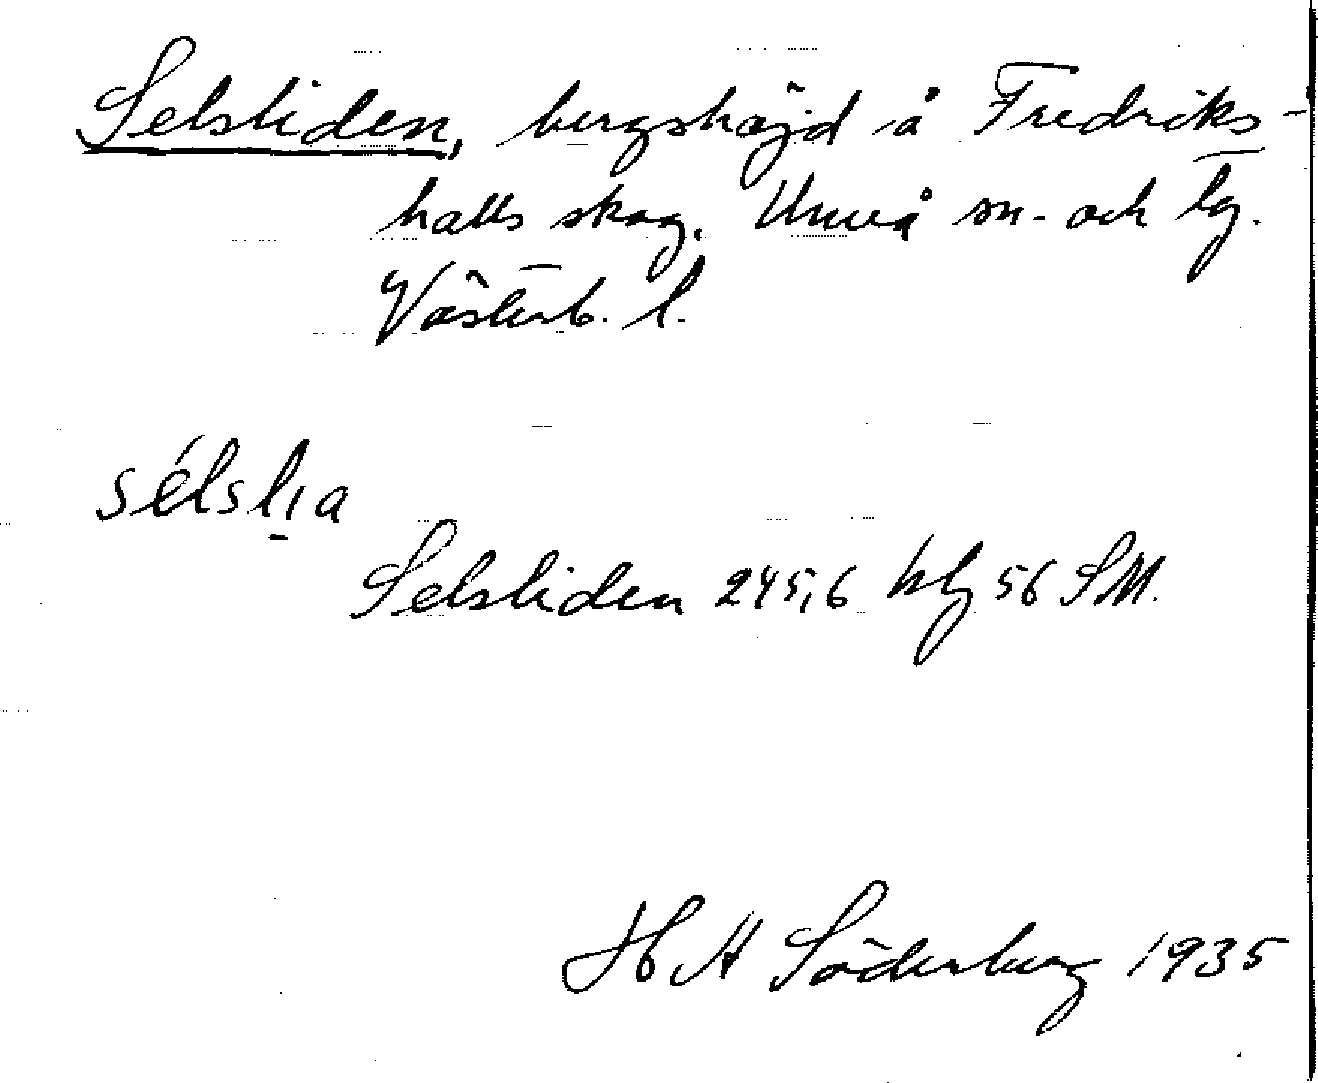 Selsliden, bergshöjd å Fredriks-
halls skog. Umeå sn. och lg.
Västerb. l.
sélslıa
Selsliden 245,6 blg 56 SM.
H A Söderberg 1935